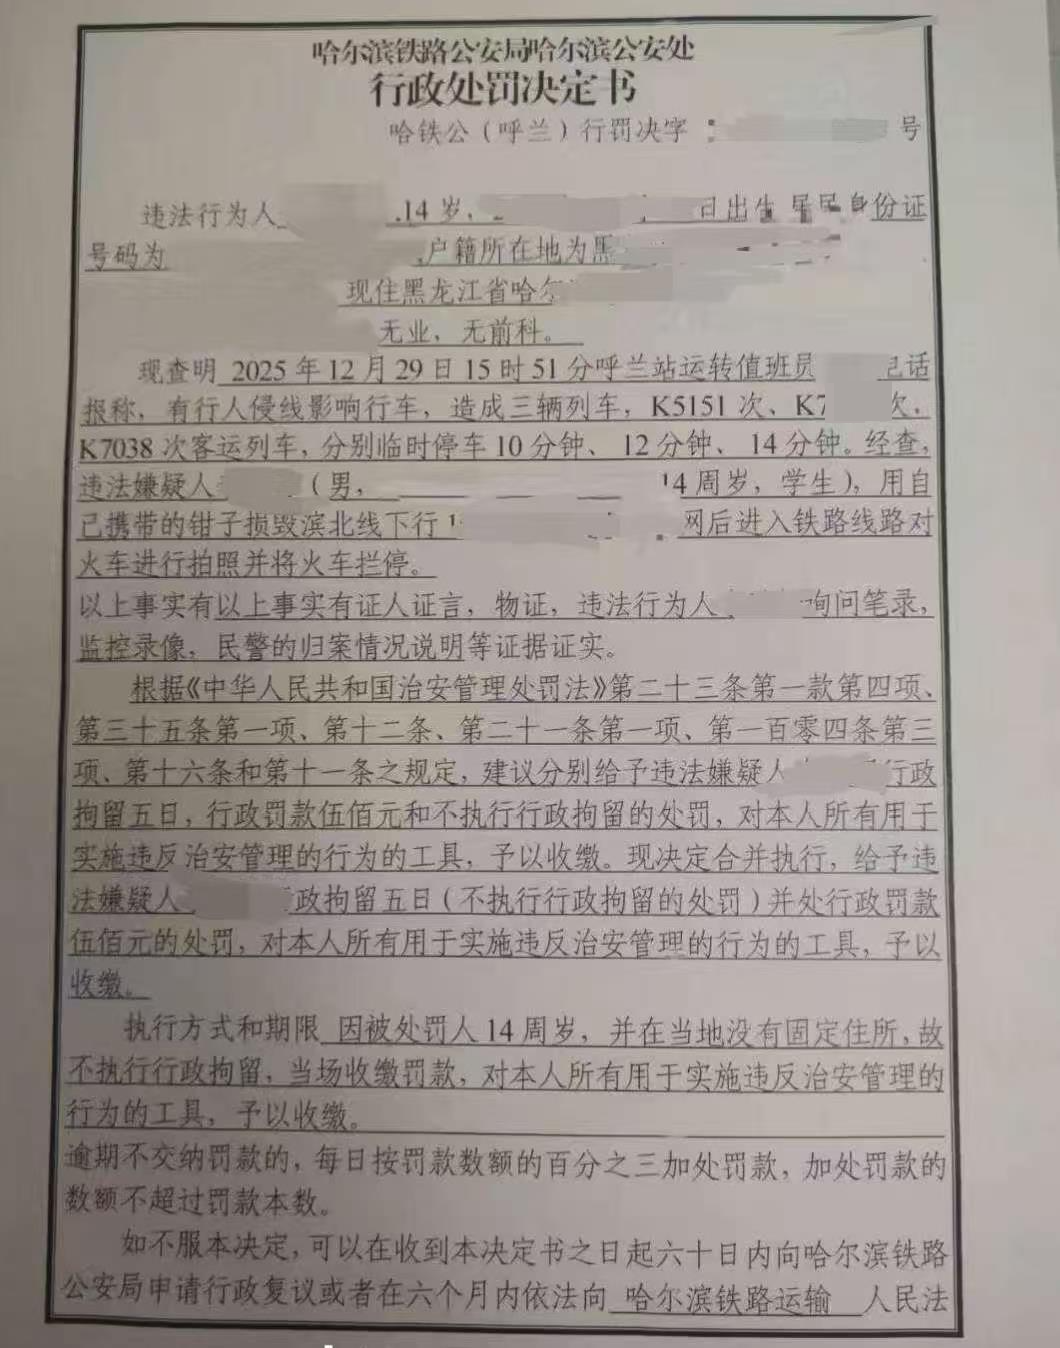 哈尔滨铁路公安局哈尔滨公安处
行政处罚决定书
哈铁公（呼兰）行罚决字 号
违法行为人 14岁， 日出生 居民身份证
号码为 ，户籍所在地为黑
现住黑龙江省哈尔
无业，无前科。
现查明 2025年12月29日15时51分呼兰站运转值班员 话
报称，有行人侵线影响行车，造成三辆列车，K5151次、K7 次，
K7038次客运列车，分别临时停车10分钟、12分钟、14分钟。经查，
违法嫌疑人 （男， 14周岁，学生），用自
己携带的钳子损毁滨北线下行1 网后进入铁路线路对
火车进行拍照并将火车拦停。
以上事实有以上事实有证人证言，物证，违法行为人 询问笔录，
监控录像，民警的归案情况说明等证据证实。
根据《中华人民共和国治安管理处罚法》第二十三条第一款第四项、
第三十五条第一项、第十二条、第二十一条第一项、第一百零四条第三
项、第十六条和第十一条之规定，建议分别给予违法嫌疑人 行政
拘留五日，行政罚款伍佰元和不执行行政拘留的处罚，对本人所有用于
实施违反治安管理的行为的工具，予以收缴。现决定合并执行，给予违
法嫌疑人 政拘留五日（不执行行政拘留的处罚）并处行政罚款
伍佰元的处罚，对本人所有用于实施违反治安管理的行为的工具，予以
收缴。
执行方式和期限 因被处罚人14周岁，并在当地没有固定住所，故
不执行行政拘留，当场收缴罚款，对本人所有用于实施违反治安管理的
行为的工具，予以收缴。
逾期不交纳罚款的，每日按罚款数额的百分之三加处罚款，加处罚款的
数额不超过罚款本数。
如不服本决定，可以在收到本决定书之日起六十日内向哈尔滨铁路
公安局申请行政复议或者在六个月内依法向 哈尔滨铁路运输 人民法